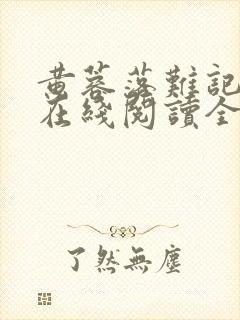 黄蓉落難記
在綫閱讀全
了然無塵